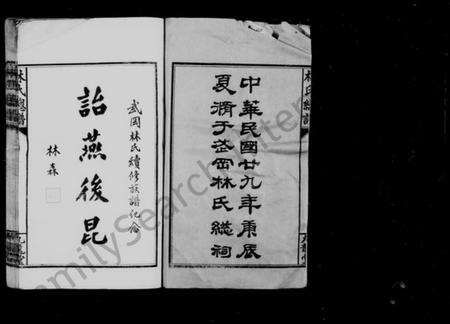 中華民國廿九年庚辰
夏
于武岡林氏總祠
武岡林氏續修族譜紀念
詒燕後昆
林森
林氏總譜
FamilySearch